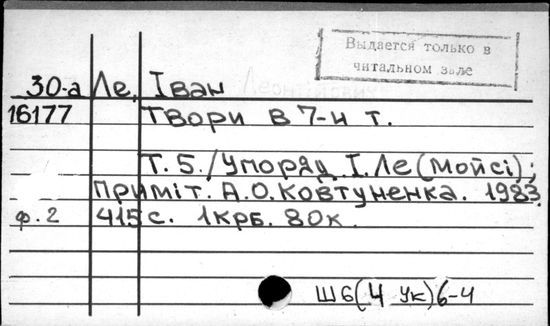 Выдается только в
читальном зале
30-а Ле, Іван
16177 Твори в 7-и т.
Т. 5. / Упоряд. І. Ле (Мойсі);
Приміт. А.О. Ковтуненка. 1983.
ф. 2 415 с. 1крб. 80к.
Ш6(4 Ук)6-4